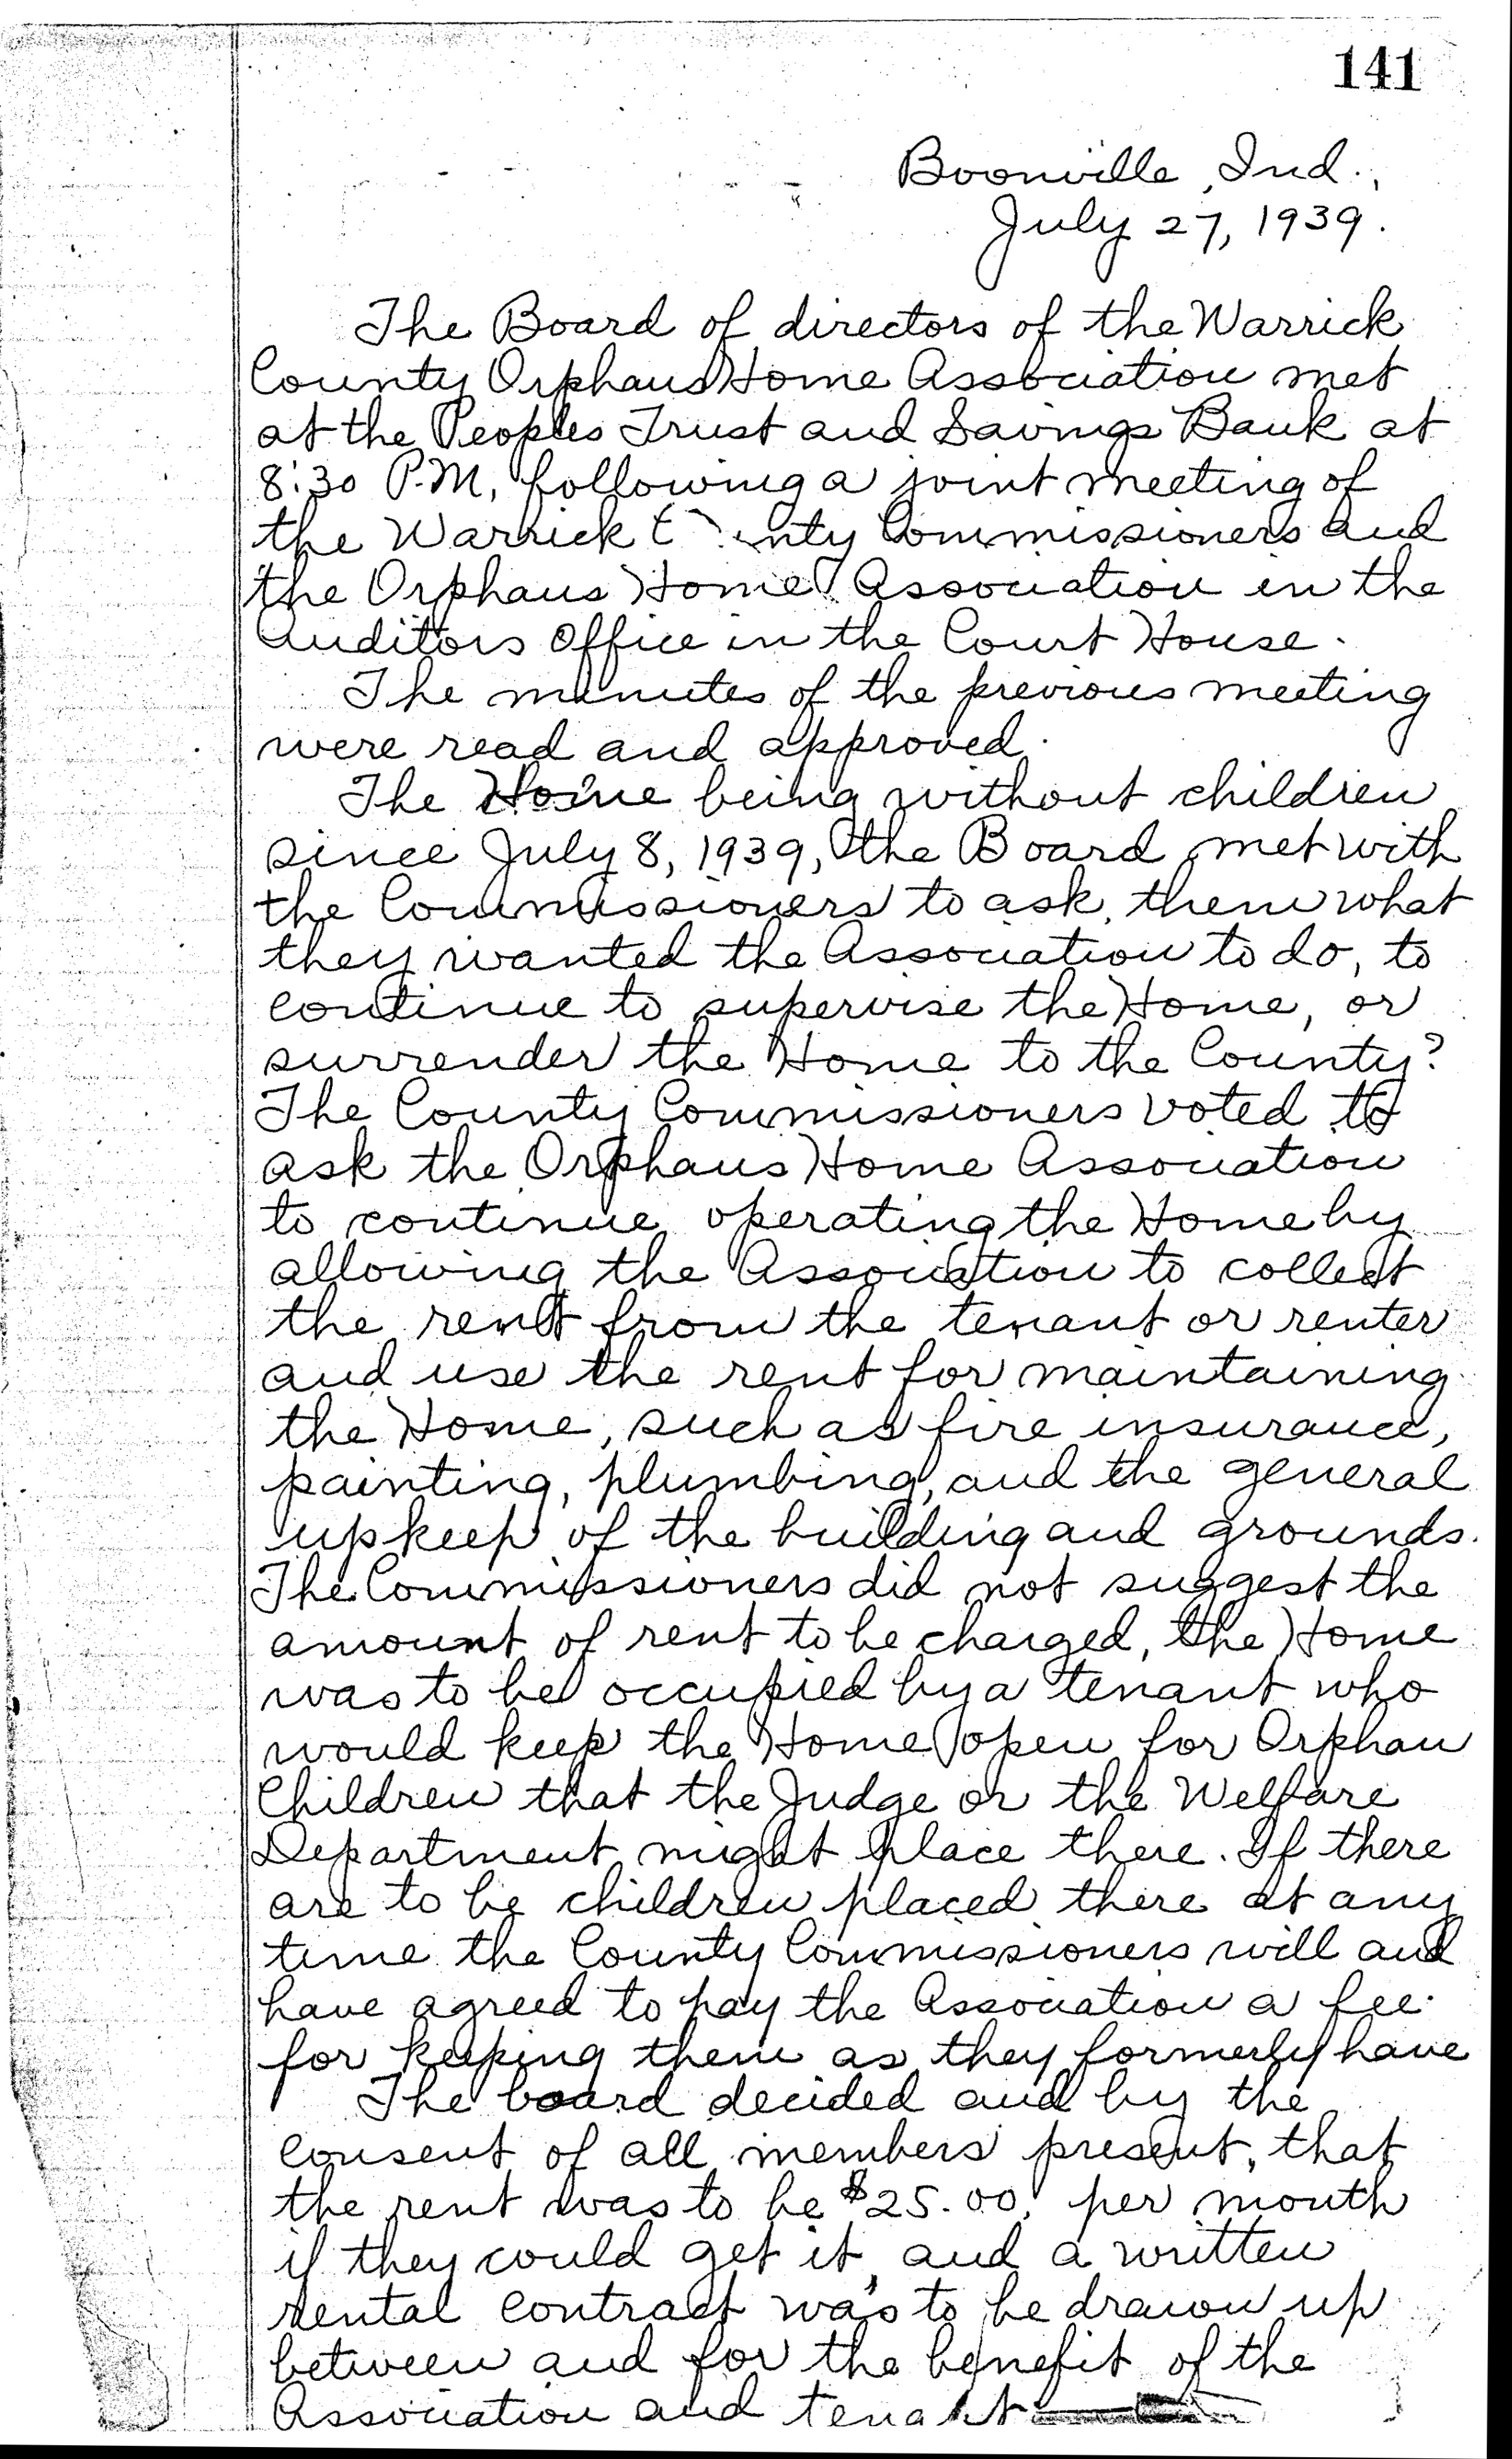 141
Boonville, Ind.,
July 27, 1939.
The Board of directors of the Warrick
County Orphans Home Association met
at the Peoples Trust and Savings Bank at
8:30 P.M., following a joint meeting of
the Warrick County Commissioners and
the Orphans Home Association in the
Auditors Office in the Court House.
The minutes of the previous meeting
were read and approved.
The Home being without children
since July 8, 1939, the Board met with
the Commissioners to ask them what
they wanted the Association to do, to
continue to supervise the Home, or
surrender the Home to the County?
The County Commissioners voted to
ask the Orphans Home Association
to continue operating the Home by
allowing the Association to collect
the rent from the tenant or renter
and use the rent for maintaining
the Home, such as fire insurance,
painting, plumbing, and the general
upkeep of the building and grounds.
The Commissioners did not suggest the
amount of rent to be charged, the Home
was to be occupied by a tenant who
would keep the Home open for Orphan
Children that the Judge or the Welfare
Department might place there. If there
are to be children placed there at any
time the County Commissioners will and
have agreed to pay the Association a fee
for keeping them as they formerly have
The board decided and by the
consent of all members present, that
the rent was to be $25.00 per month
if they could get it, and a written
rental contract was to be drawn up
between and for the benefit of the
Association and tenant